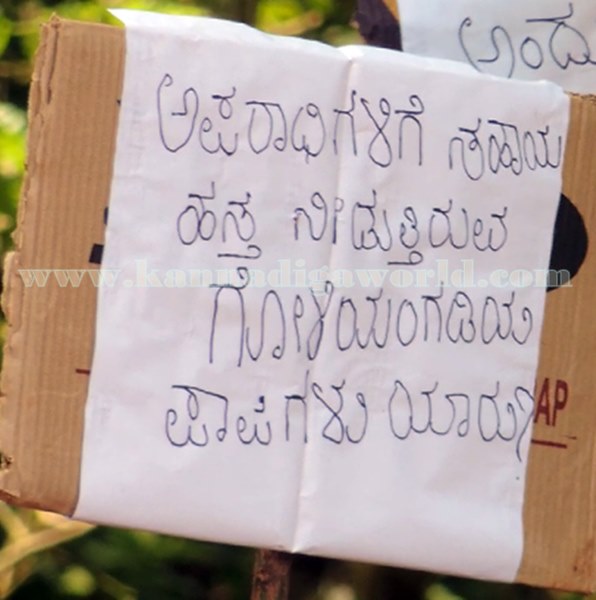 ಅಂದು
ಅಪರಾಧಿಗಳಿಗೆ ಸಹಾಯ
ಹಸ್ತ ನೀಡುತ್ತಿರುವ
www.kanundigaworld.com
ಗೋಳಿಯಂಗಡಿಯ
ಪಾಪಿಗಳು ಯಾರು?
AP